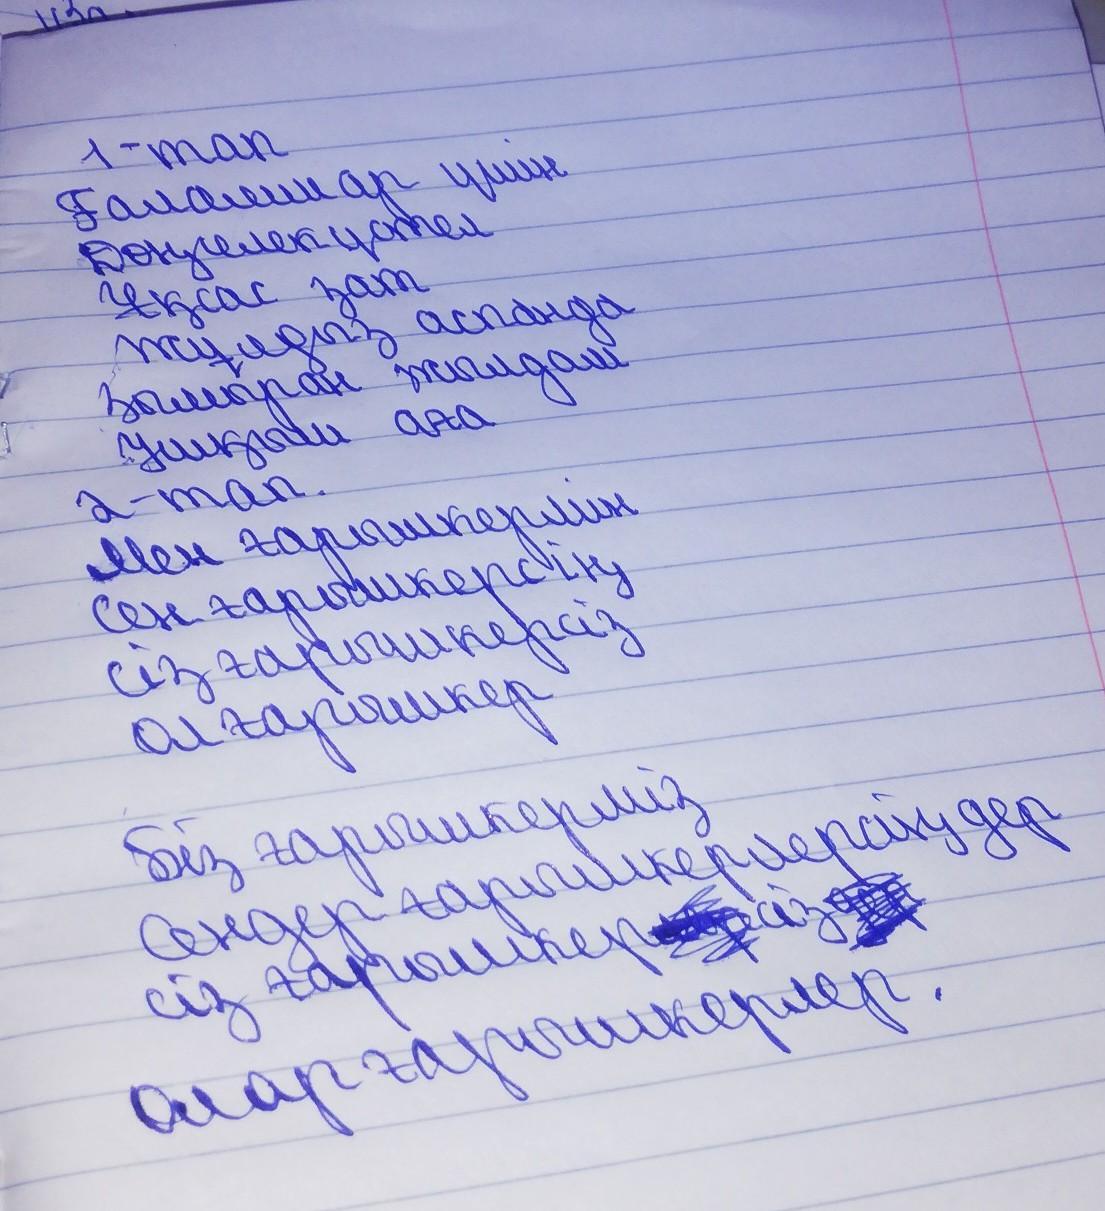 1-тап
Ғаламшар үшін
Дөңгелек цотел
Ұқсас зат
Жұлдыз аспанда
Зымыран жылдам
Ұшқыш ана
2-тап.
Мен ғарышкермін
Сен ғарышкерсің
Сіз ғарышкерсіз
Ол ғарышкер
Біз ғарышкерміз
Сендер ғарышкерлерсіңдер
Сіз ғарышкер сіз
Олар ғарышкерлер.